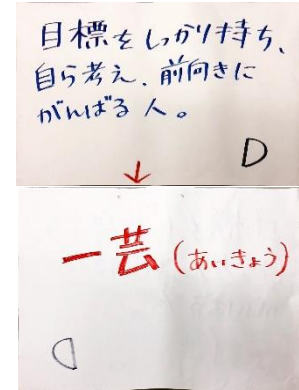 目標をしっかり持ち、
自ら考え、前向きに
がんばる人。
D
↓
一芸(あいきょう)
D